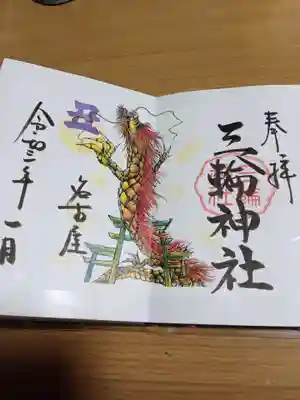 奉拝
三輪神社
丑
名古屋
令和三年
一月